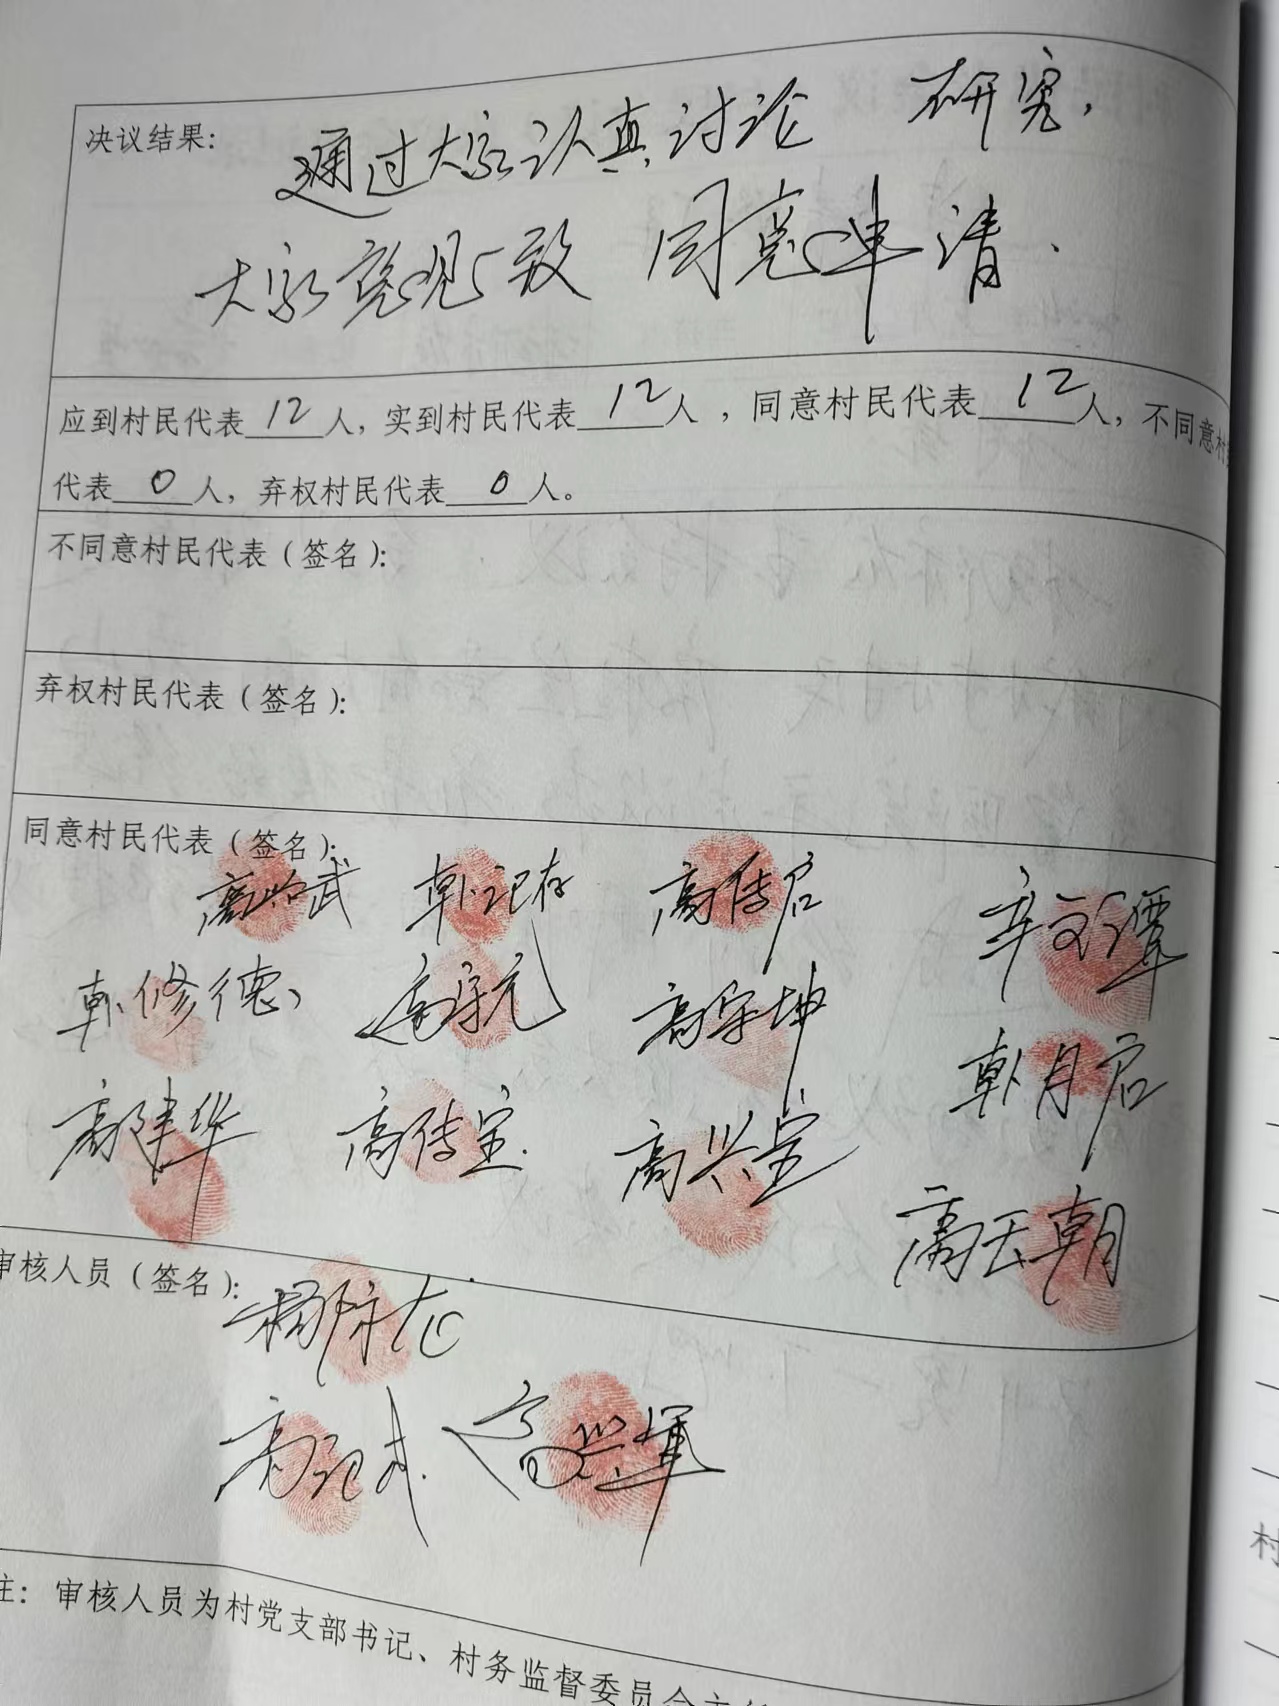 决议结果：
通过大家认真讨论 研究，
大家意见一致 同意申请.
应到村民代表12人，实到村民代表12人，同意村民代表12人，不同意村
代表0人，弃权村民代表0人。
不同意村民代表（签名）：
弃权村民代表（签名）：
同意村民代表（签名）：
高 武 记存 高传启 辛文谭
修德 高宗元 高宗坤 月启
高建华 高传宝 高兴宝 高玉朝
审核人员（签名）：
杨 龙
高记 高兴军
注：审核人员为村党支部书记、村务监督委员会主
村